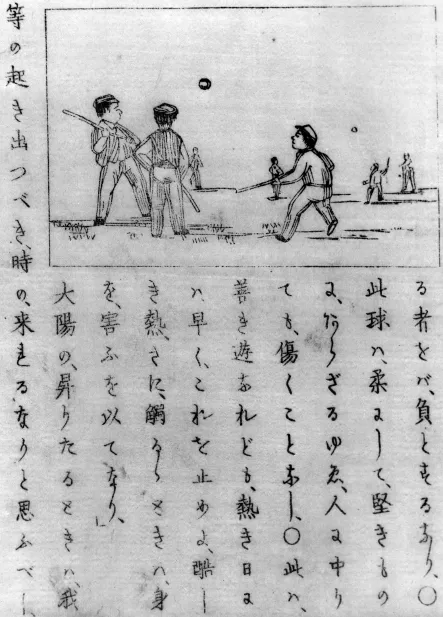 る者をバ、負とするなり、〇
此球ハ、柔にして、堅きもの
に、あらざるゆゑ、人に中り
ても、傷くことなし、〇此ハ、
善き遊なれども、熱き日に
ハ早く、これを止めよ、酷し
き熱さに、觸るゝときハ、身
を、害ふを以てなり、
大陽の、昇りたるときハ、我
等の起き出つべき、時の、来れるなりと思ふべし、